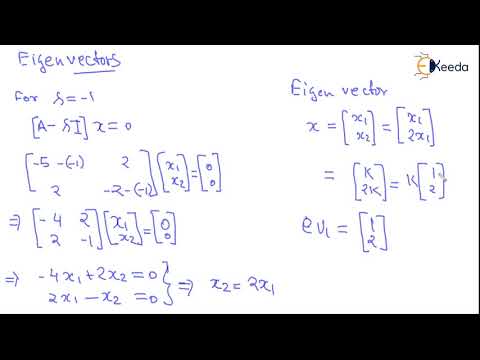 Eigenvectors
For λ = -1
[A - λI] x = 0
[-5 -(-1) 2; 2 -2-(-1)] [x₁; x₂] = [0; 0]
⇒ [-4 2; 2 -1] [x₁; x₂] = [0; 0]
⇒ -4x₁ + 2x₂ = 0
2x₁ - x₂ = 0 } ⇒ x₂ = 2x₁
Eigen vector
x = [x₁; x₂] = [x₁; 2x₁]
= [K; 2K] = K [1; 2]
eV₁ = [1; 2]
Ekeeda